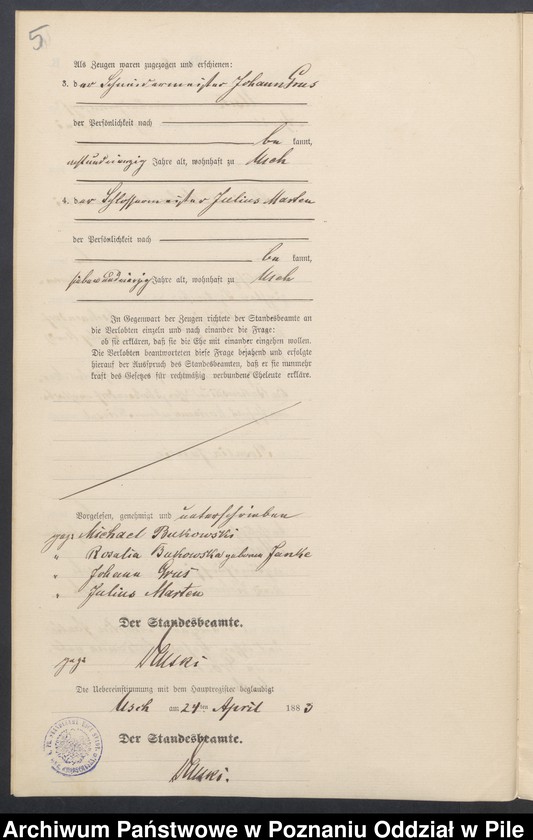 5
Als Zeugen waren zugezogen und erschienen:
3. der Schneidermeister Johann Grus
der Persönlichkeit nach
be kannt,
achtundvierzig Jahre alt, wohnhaft zu Usch
4. der Schlossermeister Julius Marten
der Persönlichkeit nach
be kannt,
siebenundvierzig Jahre alt, wohnhaft zu Usch
In Gegenwart der Zeugen richtete der Standesbeamte an
die Verlobten einzeln und nach einander die Frage:
ob sie erklären, daß sie die Ehe mit einander eingehen wollen.
Die Verlobten beantworteten diese Frage bejahend und erfolgte
hierauf der Ausspruch des Standesbeamten, daß er sie nunmehr
kraft des Gesetzes für rechtmäßig verbundene Eheleute erkläre.
Vorgelesen, genehmigt und unterschrieben
gez. Michael Bukowski
" Rosalia Bukowska geborene Janke
" Johann Grus
" Julius Marten
Der Standesbeamte.
gez.
Die Uebereinstimmung mit dem Hauptregister beglaubigt
Usch am 24ten April 1883
Der Standesbeamte.
Archiwum Państwowe w Poznaniu Oddział w Pile